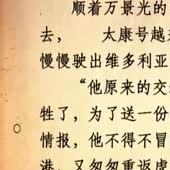 顺着万景光的
去，　太康号越
慢慢驶出维多利亚
“他原来的交
牲了，为了送一份
情报，他不得不冒
港，又匆匆重返虎